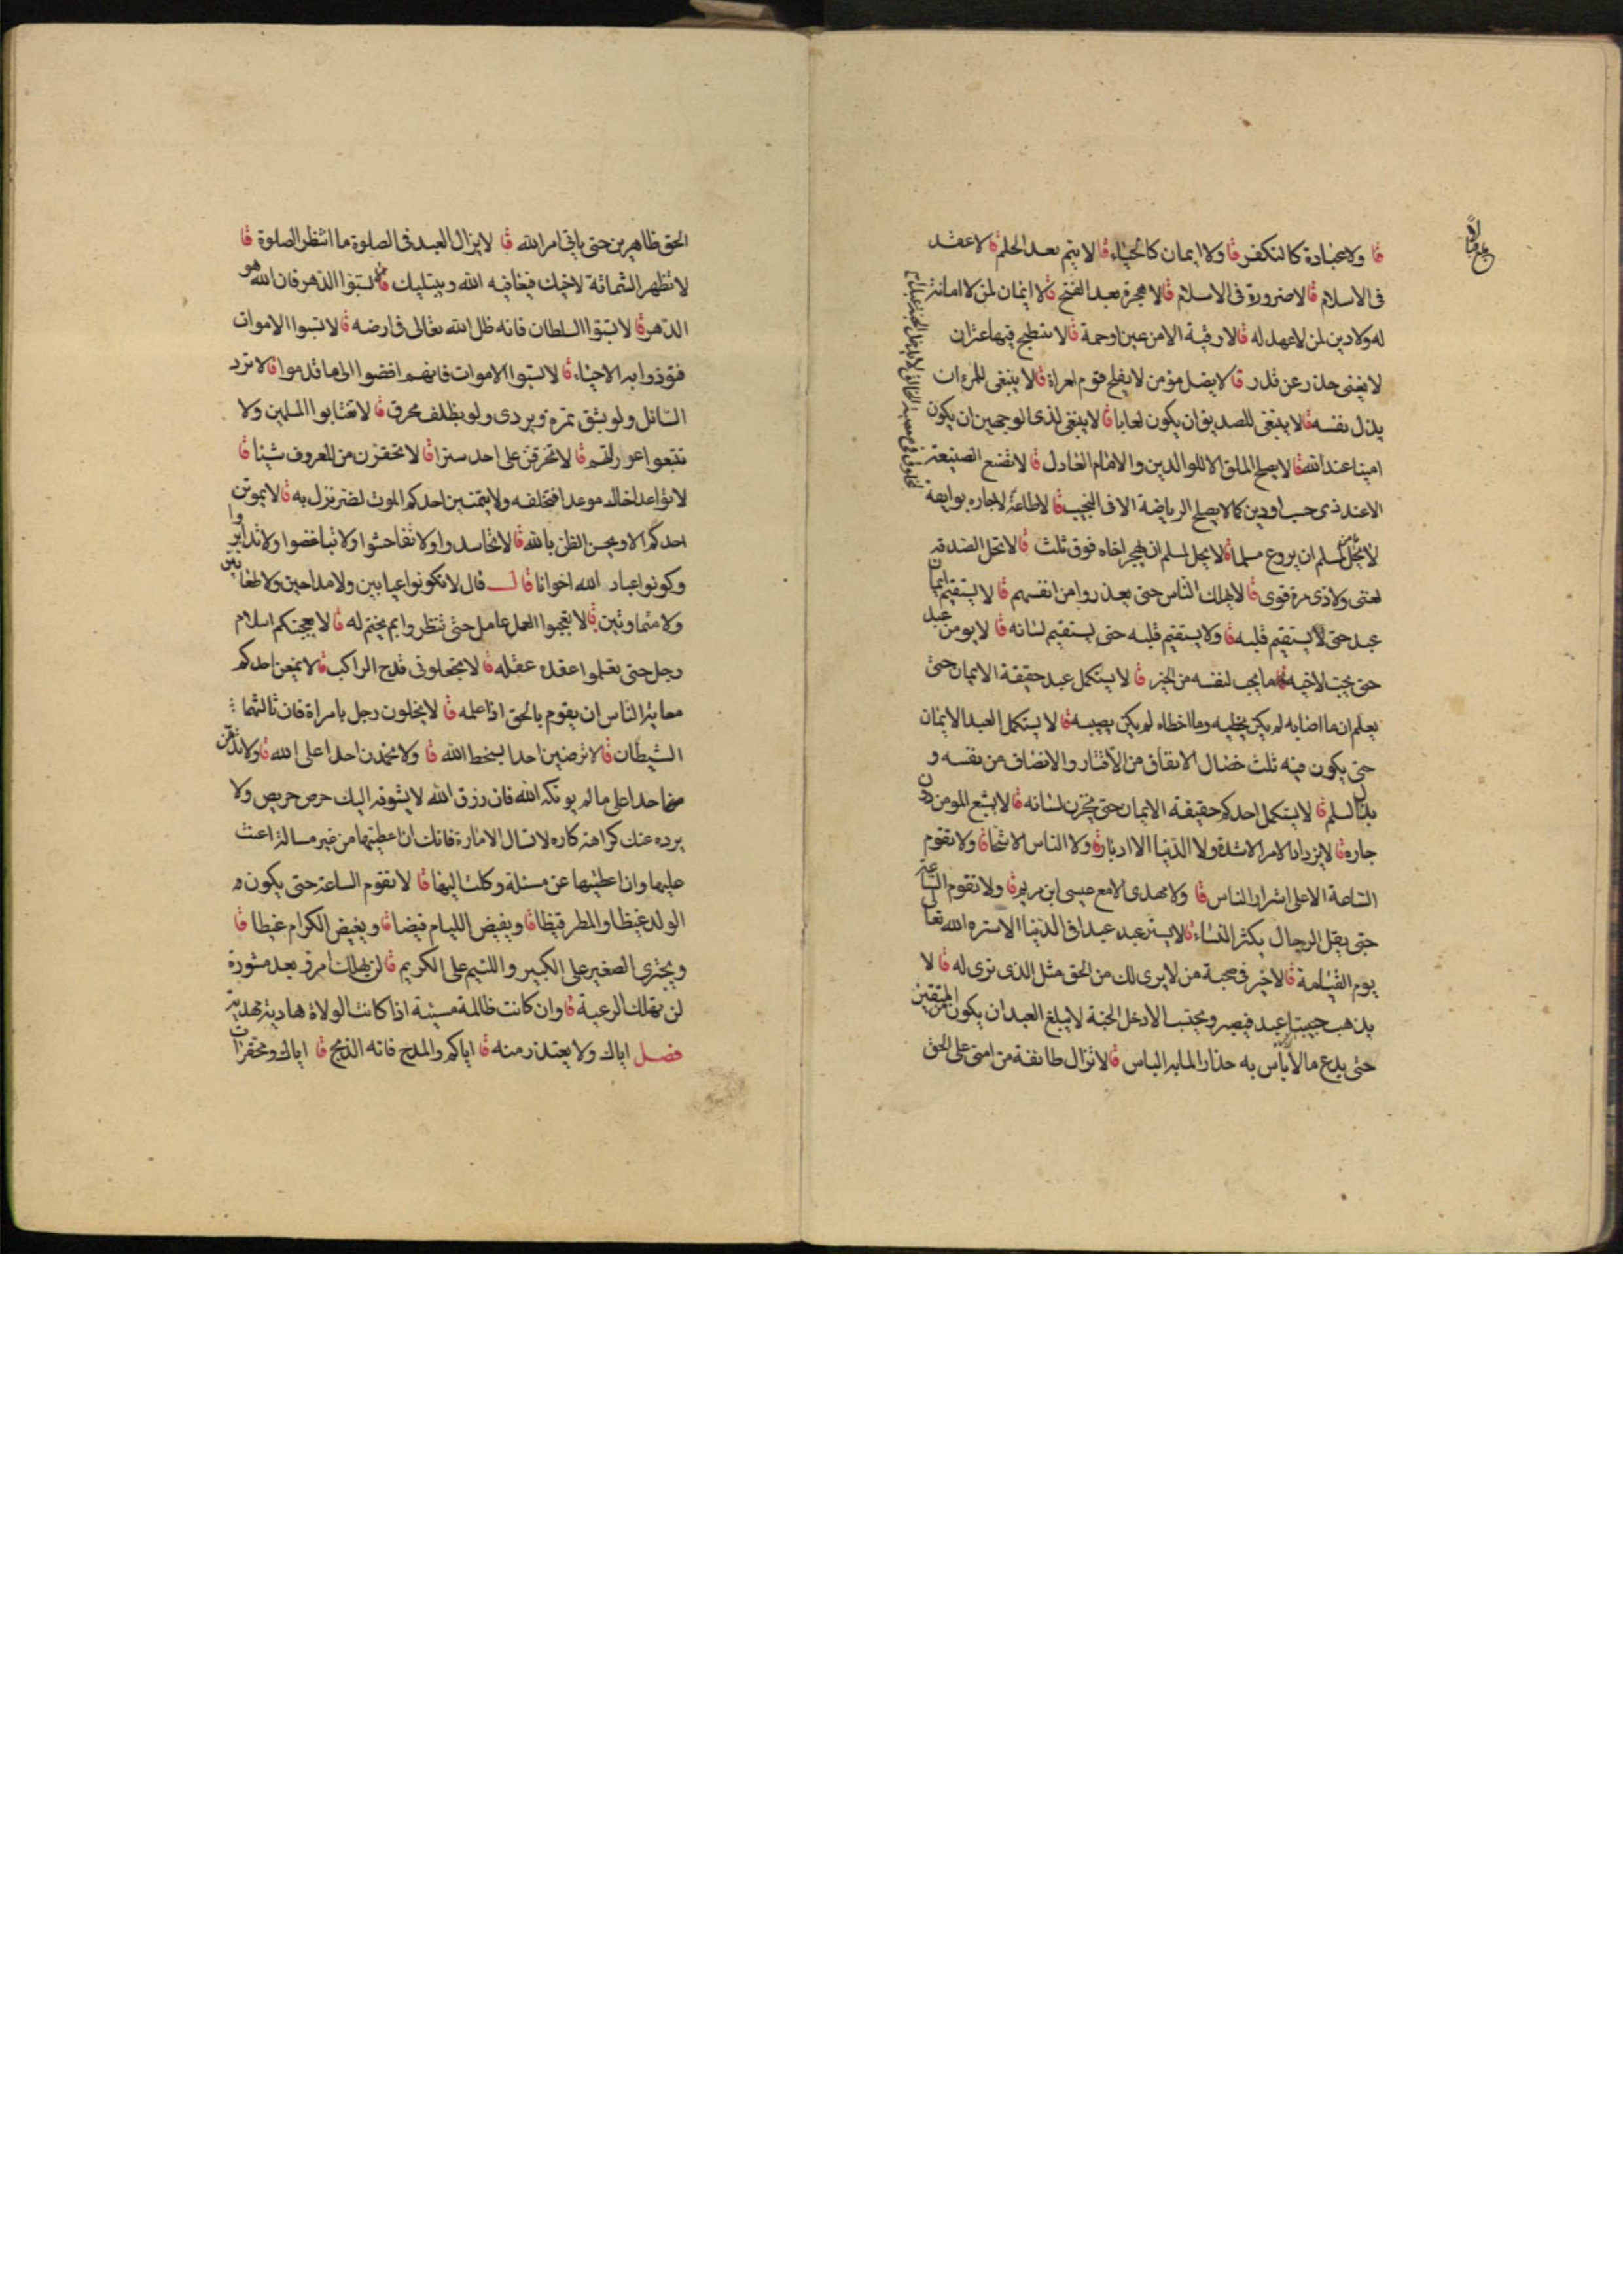 قا ولا عبادة كالتفكر قا ولا ايمان كالحياء قا لا يتم بعد الحلم قا لا عقد
فى الاسلام قا لا صرورة فى الاسلام قا لا هجرة بعد الفتح قا لا ايمان لمن لا امانة
له ولا دين لمن لا عهد له قا لا رقية الا من عين او حمة قا لا ينتطح فيها عنزان
لا يغنى حذر عن قدر قا لا يضل مؤمن لا يفلح قوم امراة قا لا ينبغى للمرء ان
يذل نفسه قا لا ينبغى للصديق ان يكون لعانا قا لا ينبغى لذى الوجهين ان يكون
امينا عند الله قا لا يصلح الملق الا للوالدين والامام العادل قا لا تصنع الصنيعة
الا عند ذى حسب او دين كما لا يصلح الرياضة الا فى النجيب قا لا طاعة لا جاره بوايقة
لا يحل لمسلم ان يروع مسلما قا لا يحل لمسلم ان يهجر اخاه فوق ثلث قا لا تحل الصدقه
لغنى ولا ذى مرة قوى قا لا يهلك الناس حتى يعذروا من انفسهم قا لا يستقيم ايمان
عبد حتى لا يستقيم قلبه قا ولا يستقيم قلبه حتى يستقيم لسانه قا لا يومن عبد
حتى يحب لاخيه ما يحب لنفسه من الخير قا لا يستكمل عبد حقيقة الايمان حتى
يعلم ان ما اصابه لم يكن يخطيه وما اخطاه لم يكن يصيبه قا لا يستكمل العبد الايمان
حتى يكون فيه ثلث خصال الانفاق من الاقتار والانصاف من نفسه و
بذل السلم قا لا يستكمل احدكم حقيقة الايمان حتى يخزن لسانه قا لا يشبع المومن دون
جاره قا لا يزداد الامر الا شدة ولا الدنيا الا ادبارا قا ولا الناس الا شحا قا ولا تقوم
الساعة الا على اشرار الناس قا ولا مهدى الا مع عيسى ابن مريم قا ولا تقوم الساعة
حتى يقل الرجال يكثر النساء قا لا يستر عبد عبدا فى الدنيا الا ستره الله تعالى
يوم القيامة قا لا خير فى صحبة من لا يرى لك من الحق مثل الذى ترى له قا لا
يذهب حبيبتا عبد فيصبر ويحتسب الا دخل الجنة لا يبلغ العبد ان يكون من المتقين
حتى يدع ما لا بأس به حذارا لما به الباس قا لا تزال طائفة من امتى على الحق
الحق ظاهرين حتى ياتى امر الله قا لا يزال العبد فى الصلوة ما انتظر الصلوة قا
لا تظهر الشماتة لاخيك فيعافيه الله ويبتليك قا لا تسبوا الدهر فان الله هو
الدهر قا لا تسبوا السلطان فانه ظل الله تعالى فى ارضه قا لا تسبوا الاموات
فتوذوا به الاحياء قا لا تسبوا الاموات فانهم افضوا الى ما قدموا قا لا ترد
السائل ولو بشق تمرة ويردى ولو بظلف محرق قا لا تغتابوا المسلمين ولا
تتبعوا عوراتهم قا لا تخرقن على احد سترا قا لا تحقرن من المعروف شيئا قا
لا تواعد اخاك موعدا فتخلفه ولا يتمنين احدكم الموت لضر نزل به قا لا يموتن
احدكم الا ويحسن الظن بالله قا لا تحاسدوا ولا تفاحشوا ولا تباغضوا ولا تدابروا
وكونوا عباد الله اخوانا قال قال لا تكونوا عيابين ولا مداحين ولا طعانين
ولا متماوتين قا لا تعجبوا العمل عامل حتى تنظروا بم يختم له قا لا يعجبنكم اسلام
رجل حتى تعلموا عقدة عقله قا لا تجعلونى قدح الراكب قا لا يمنعن احدكم
مهابة الناس ان يقوم بالحق اذا علمه قا لا يخلون رجل بامراة فان ثالثهما
الشيطان قا لا ترضين احدا بسخط الله قا ولا تحمدن احدا على الله قا ولا تذمن
احدا على ما لم يوتكه الله فان رزق الله لا يسوقه اليك حرص حريص ولا
يرده عنك كراهة كاره لا تسال الامارة فانك ان اعطيتها من غير مسالة اعنت
عليها وان اعطيتها عن مسئلة وكلت اليها قا لا تقوم الساعة حتى يكون
الولد غيظا والمطر قيظا قا ويفيض الليام فيضا قا ويغيض الكرام غيظا قا
ويجترى الصغير على الكبير واللئيم على الكريم قا لن يهلك امرؤ بعد مشورة
لن تهلك الرعية قا وان كانت ظالمة مسيئة اذا كانت الولاة هادية مهدية
فصل اياك ولا يعتذر منه قا اياكم والمدح فانه الذبح قا اياك ومحقرات